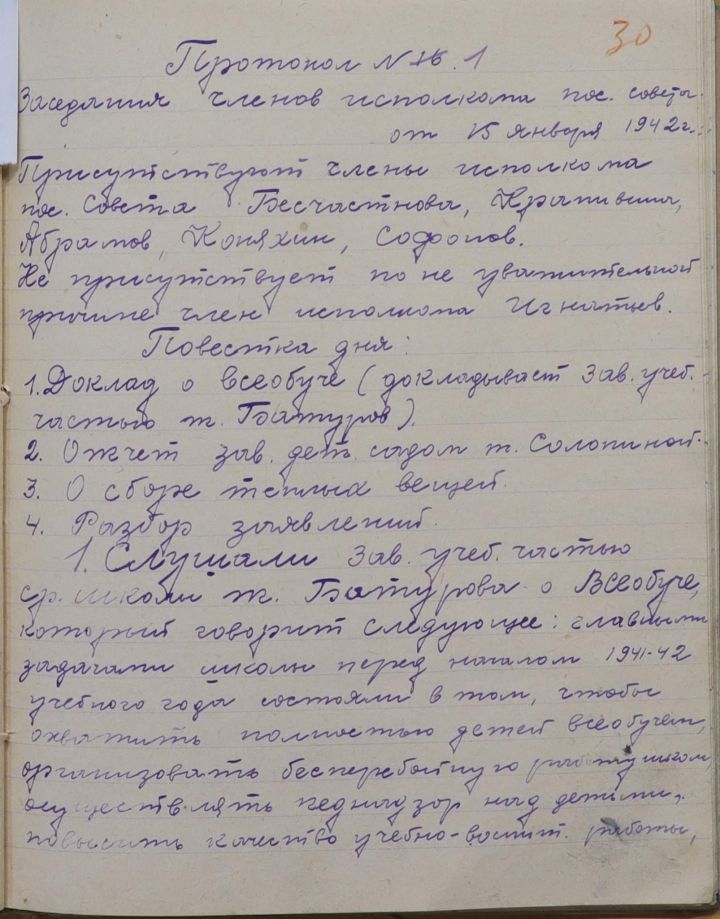 30
Протокол N 1
Заседания членов исполкома пос. совета
от 15 января 1942 г.
Присутствуют члены исполкома
пос. Совета Бесчастнова, Крапивин,
Абрамов, Коняхин, Софронов.
Не присутствует по не уважительной
причине член исполкома Игнатьев.
Повестка дня:
1. Доклад о всеобуче (докладывает Зав. учеб.-
частью т. Батуров).
2. Отчет зав. дет. садом т. Солониной.
3. О сборе теплых вещей.
4. Разбор заявлений.
1. Слушали Зав. учеб. частью
ср. школы т. Батурова о Всеобуче,
который говорит следующее: главными
задачами школы перед началом 1941-42
учебного года состояли в том, чтобы
охватить полностью детей всеобучем,
организовать бесперебойную работу школы,
осуществлять педнадзор над детьми,
повысить качество учебно-воспит. работы,